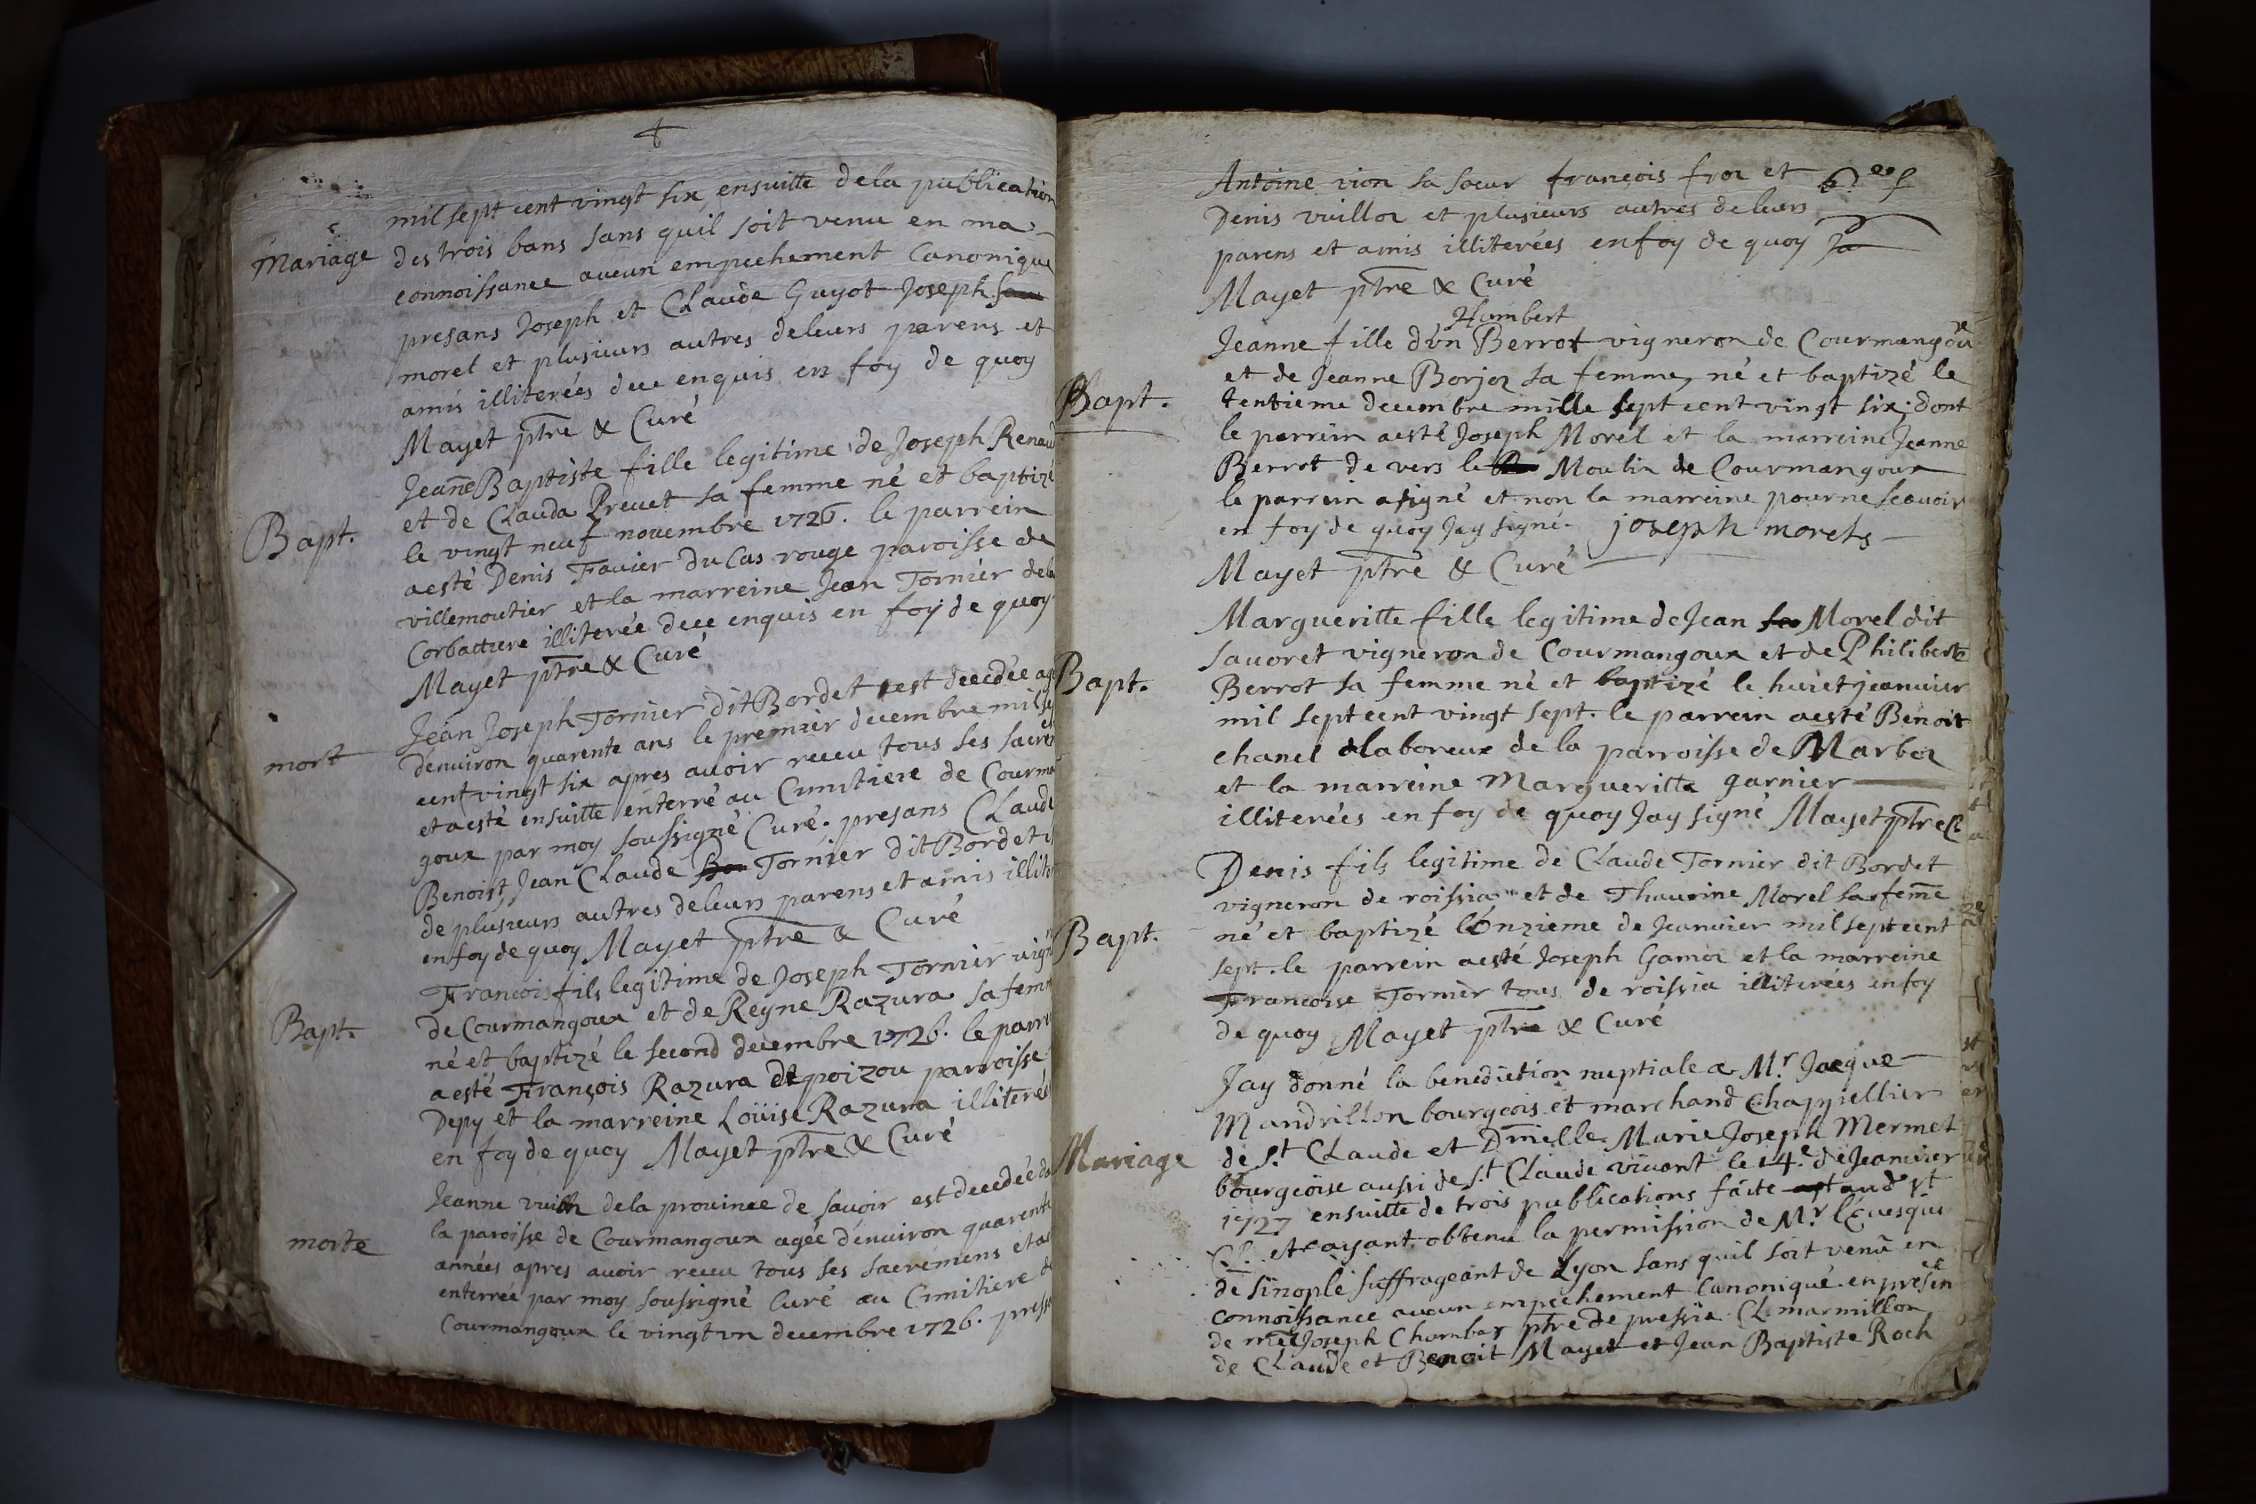 mil sept cent vingt six ensuitte dela publication
Mariage
des trois bans sans quil soit venu en ma
connoissance aucun empechement Canonique
presans Joseph et Claude Guyot Joseph
morel et plusieurs autres deleurs parens et
amis illiterées due enquis en foy de quoy
Mayet ptre & Curé
Bapt.
Jeane Baptiste fille legitime de Joseph Renaud
et de Clauda Prevet sa femme né et baptizé
le vingt neuf novembre 1726. le parrein
aesté Denis Favier du Cas rouge paroisse de
villemoutier et la marreine Jean Tornier dela
Corbattiere illiterée due enquis en foy de quoy
Mayet ptre & Curé
mort
Jean Joseph Tornier dit Bordet est decedée agé
denuiron quarente ans le premier decembre mil sept
cent vingt six apres auoir receu tous ses sacrem
et aesté ensuitte enterré au Cimitiere de Courman
goux par moy soussigné Curé. presans Claude
Benoist, Jean Claude Tornier dit Bordet et
de plusieurs autres deleurs parens et amis illiter
en foy de quoy Mayet ptre & Curé
Bapt.
Francois fils legitime de Joseph Tornier vign
de Courmangoux et de Reyne Razura sa femme
né et baptizé le second decembre 1726. le parrein
aesté François Razura de poizou parroisse
Depy et la marreine Loüise Razura illiterés
en foy de quoy Mayet ptre & Curé
morte
Jeanne dela prouince de sauoir est decedée
la paroisse de Courmangoux agée denuiron quarente
années apres auoir receu tous ses sacremens et a
enterrée par moy soussigné Curé au Cimitiere de
Courmangoux le vingt vn decembre 1726. presa
Antoine vion sa soeur françois fror et
Denis vuillor et plusieurs autres deleurs
parens et amis illiterées enfoy de quoy
Mayet ptre & Curé
Humbert
Bapt.
Jeanne fille d'vn Berrot vigneron de Courmangoux
et de Jeanne Borjor sa femme, né et baptizé le
tentieme decembre mille sept cent vingt six; dont
le parrein aesté Joseph Morel et la marreine Jeanne
Berrot de vers le Moulin de Courmangoux
le parrein asigné et non la marreine pour ne scauoir
en foy de quoy Jay signé. joseph morels
Mayet ptre & Curé
Bapt.
Margueritte fille legitime de Jean Morel dit
sauoret vigneron de Courmangoux et de Philiberte
Berrot sa femme né et baptizé le huict jeanuier
mil sept cent vingt sept. le parrein aesté Benoit
chanel laboreux de la parroisse de Marboz
et la marreine Margueritte garnier
illiterées en foy de quoy Jay signé Mayet ptre
Bapt.
Denis fils legitime de Claude Tornier dit Bordet
vigneron de roissia et de Thaurine Morel sa feme
né et baptizé l'Onzieme de Jeanuier mil sept cent
sept. le parrein aesté Joseph Gamor et la marreine
Francoise Tornier tous de roissia illiterées enfoy
de quoy Mayet ptre & Curé
Mariage
Jay donné la benediction nuptiale a Mr. Jaeque
Mandrillon bourgeois et marchand Chappellier
de St. Claude et Dmelle. Marie Joseph Mermet
bourgeoise aussi de St. Claude viuant le 14e. de Jeanuier
1727 ensuitte de trois publications faite aud St
Cl. et ayant obtenu la permission de Mr. l'Euesque
de sinople suffrageant de Lyon sans quil soit venu en
connoissance aucun empechement Canonique en presen
de mre Joseph Chambar ptre de pressia Cl. marmillon
de Claude et Benoit Mayet et Jean Baptiste Roch